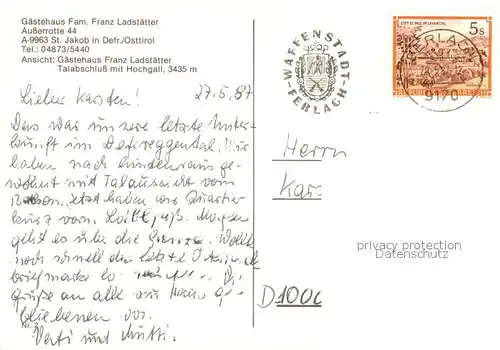 Gästehaus Fam. Franz Ladstätter
Außerrotte 44
A-9963 St. Jakob in Defr./Osttirol
Tel.: 04873/5440
Ansicht: Gästehaus Franz Ladstätter
Talabschluß mit Hochgall, 3435 m
WAFFENSTADT
FERLACH
STIFT ST. PAUL IM LAVANTTAL
5s
REPUBLIK ÖSTERREICH
FERLACH
9170
27.5.87
Lieber Karsten!
Das war unsere letzte Unter-
kunft im Defereggental. Wir
haben nach hinten raus ge-
wohnt mit Talaussicht vom
Balkon. Jetzt haben wir Quartier
kurz vorm Loiblpaß. Morgen
geht es über die Grenze. Wollte
noch schnell die letzte
briefmarke
Grüße an alle zu Hause ge-
bliebenen von
Vati und Mutti.
Herrn
Kar
privacy protection
Datenschutz
D 1000
Nr. 2